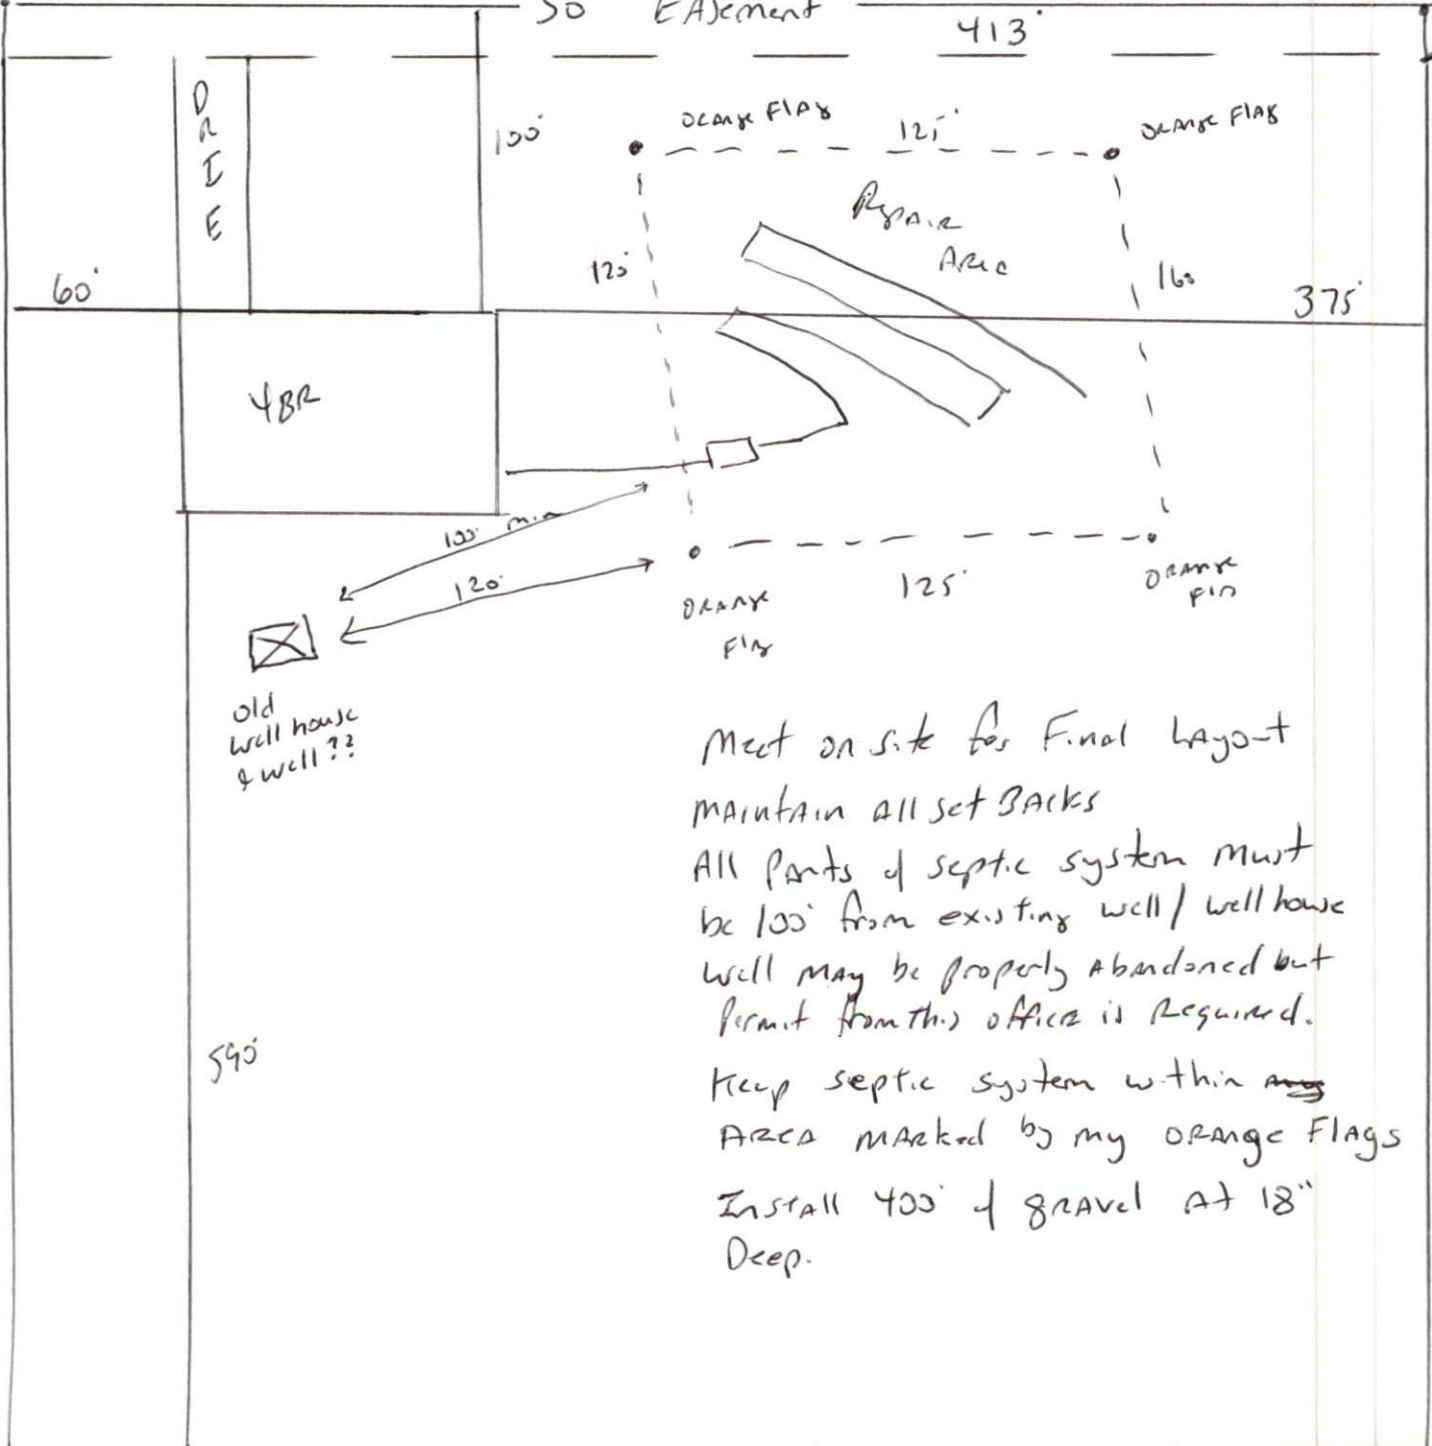 50 EASement
413'
DRIE
100'
ORANGE FlAg
125'
ORANGE FlAg
Repair
Area
120'
160
60'
375'
4BR
100' min
120'
125'
ORANGE
Flg
ORANGE
old
well house
& well??
Meet on site for Final LAyout
MAintAin All set BAcks
All PArts of septic system Must
be 100' from existing well/wellhouse
Well MAy be properly AbAndoned but
Permit from this office is Required.
Keep septic system within
AREA MARked by my ORANge FlAgs
590'
InstAll 400' of gRAvel At 18"
Deep.